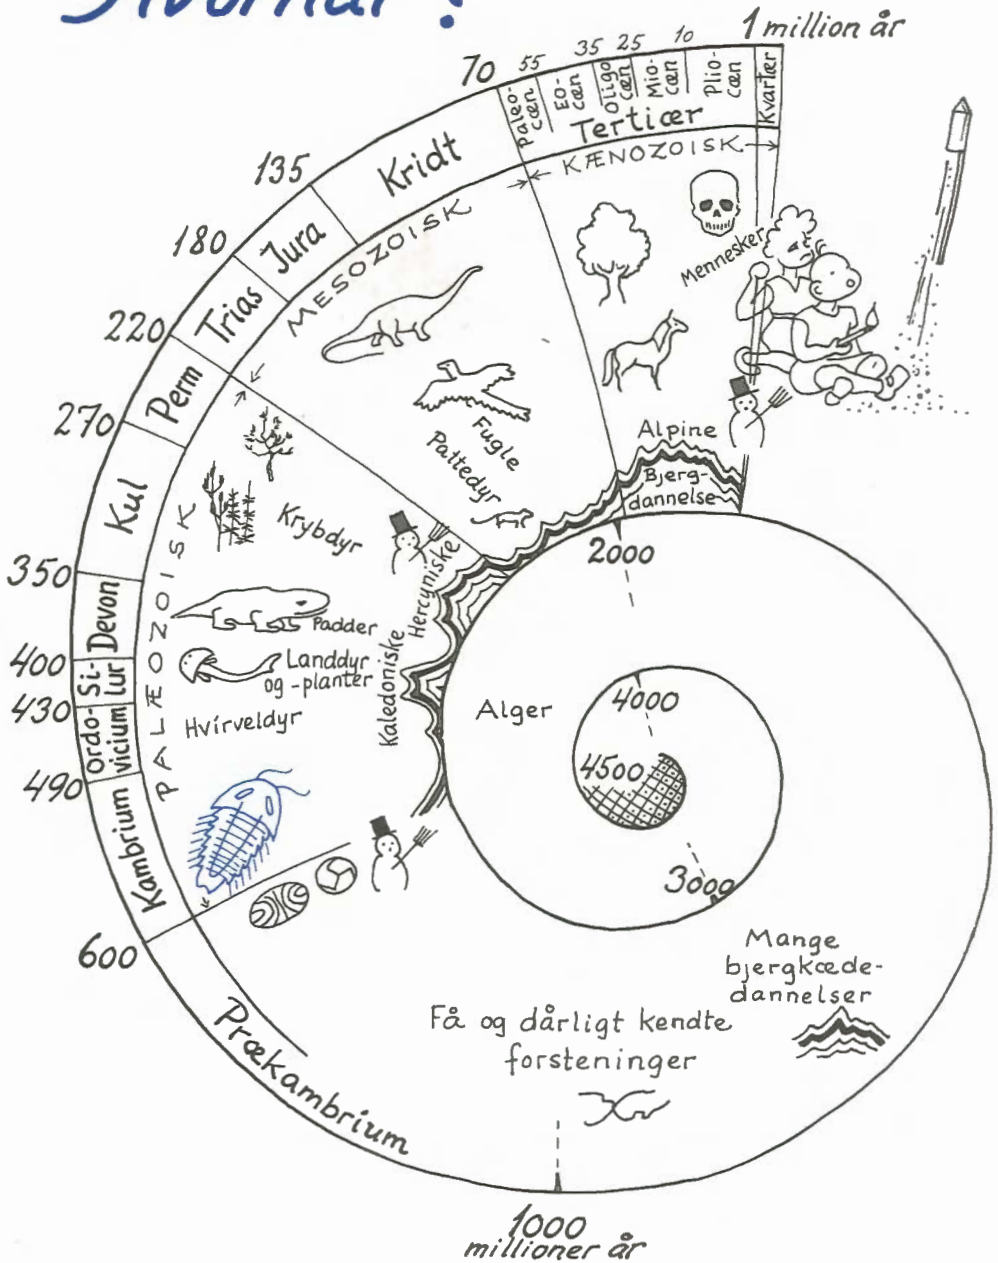 Hvornår?
1 million år
10
25
35
55
70
135
180
220
270
350
400
430
490
600
Kvartær
Plio-
cæn
Mio-
cæn
Oligo
cæn
Eo-
cæn
Paleo-
cæn
Tertiær
Kridt
Jura
Trias
Perm
Kul
Devon
Si-
lur
Ordo-
vicium
Kambrium
Prækambrium
KÆNOZOISK
MESOZOISK
PALÆOZOISK
Mennesker
Fugle
Pattedyr
Krybdyr
Padder
Landdyr
og -planter
Hvirveldyr
Alpine
Bjerg-
dannelse
Hercyniske
Kaledoniske
2000
Alger
4000
4500
3000
Mange
bjergkæde-
dannelser
Få og dårligt kendte
forsteninger
1000
millioner år